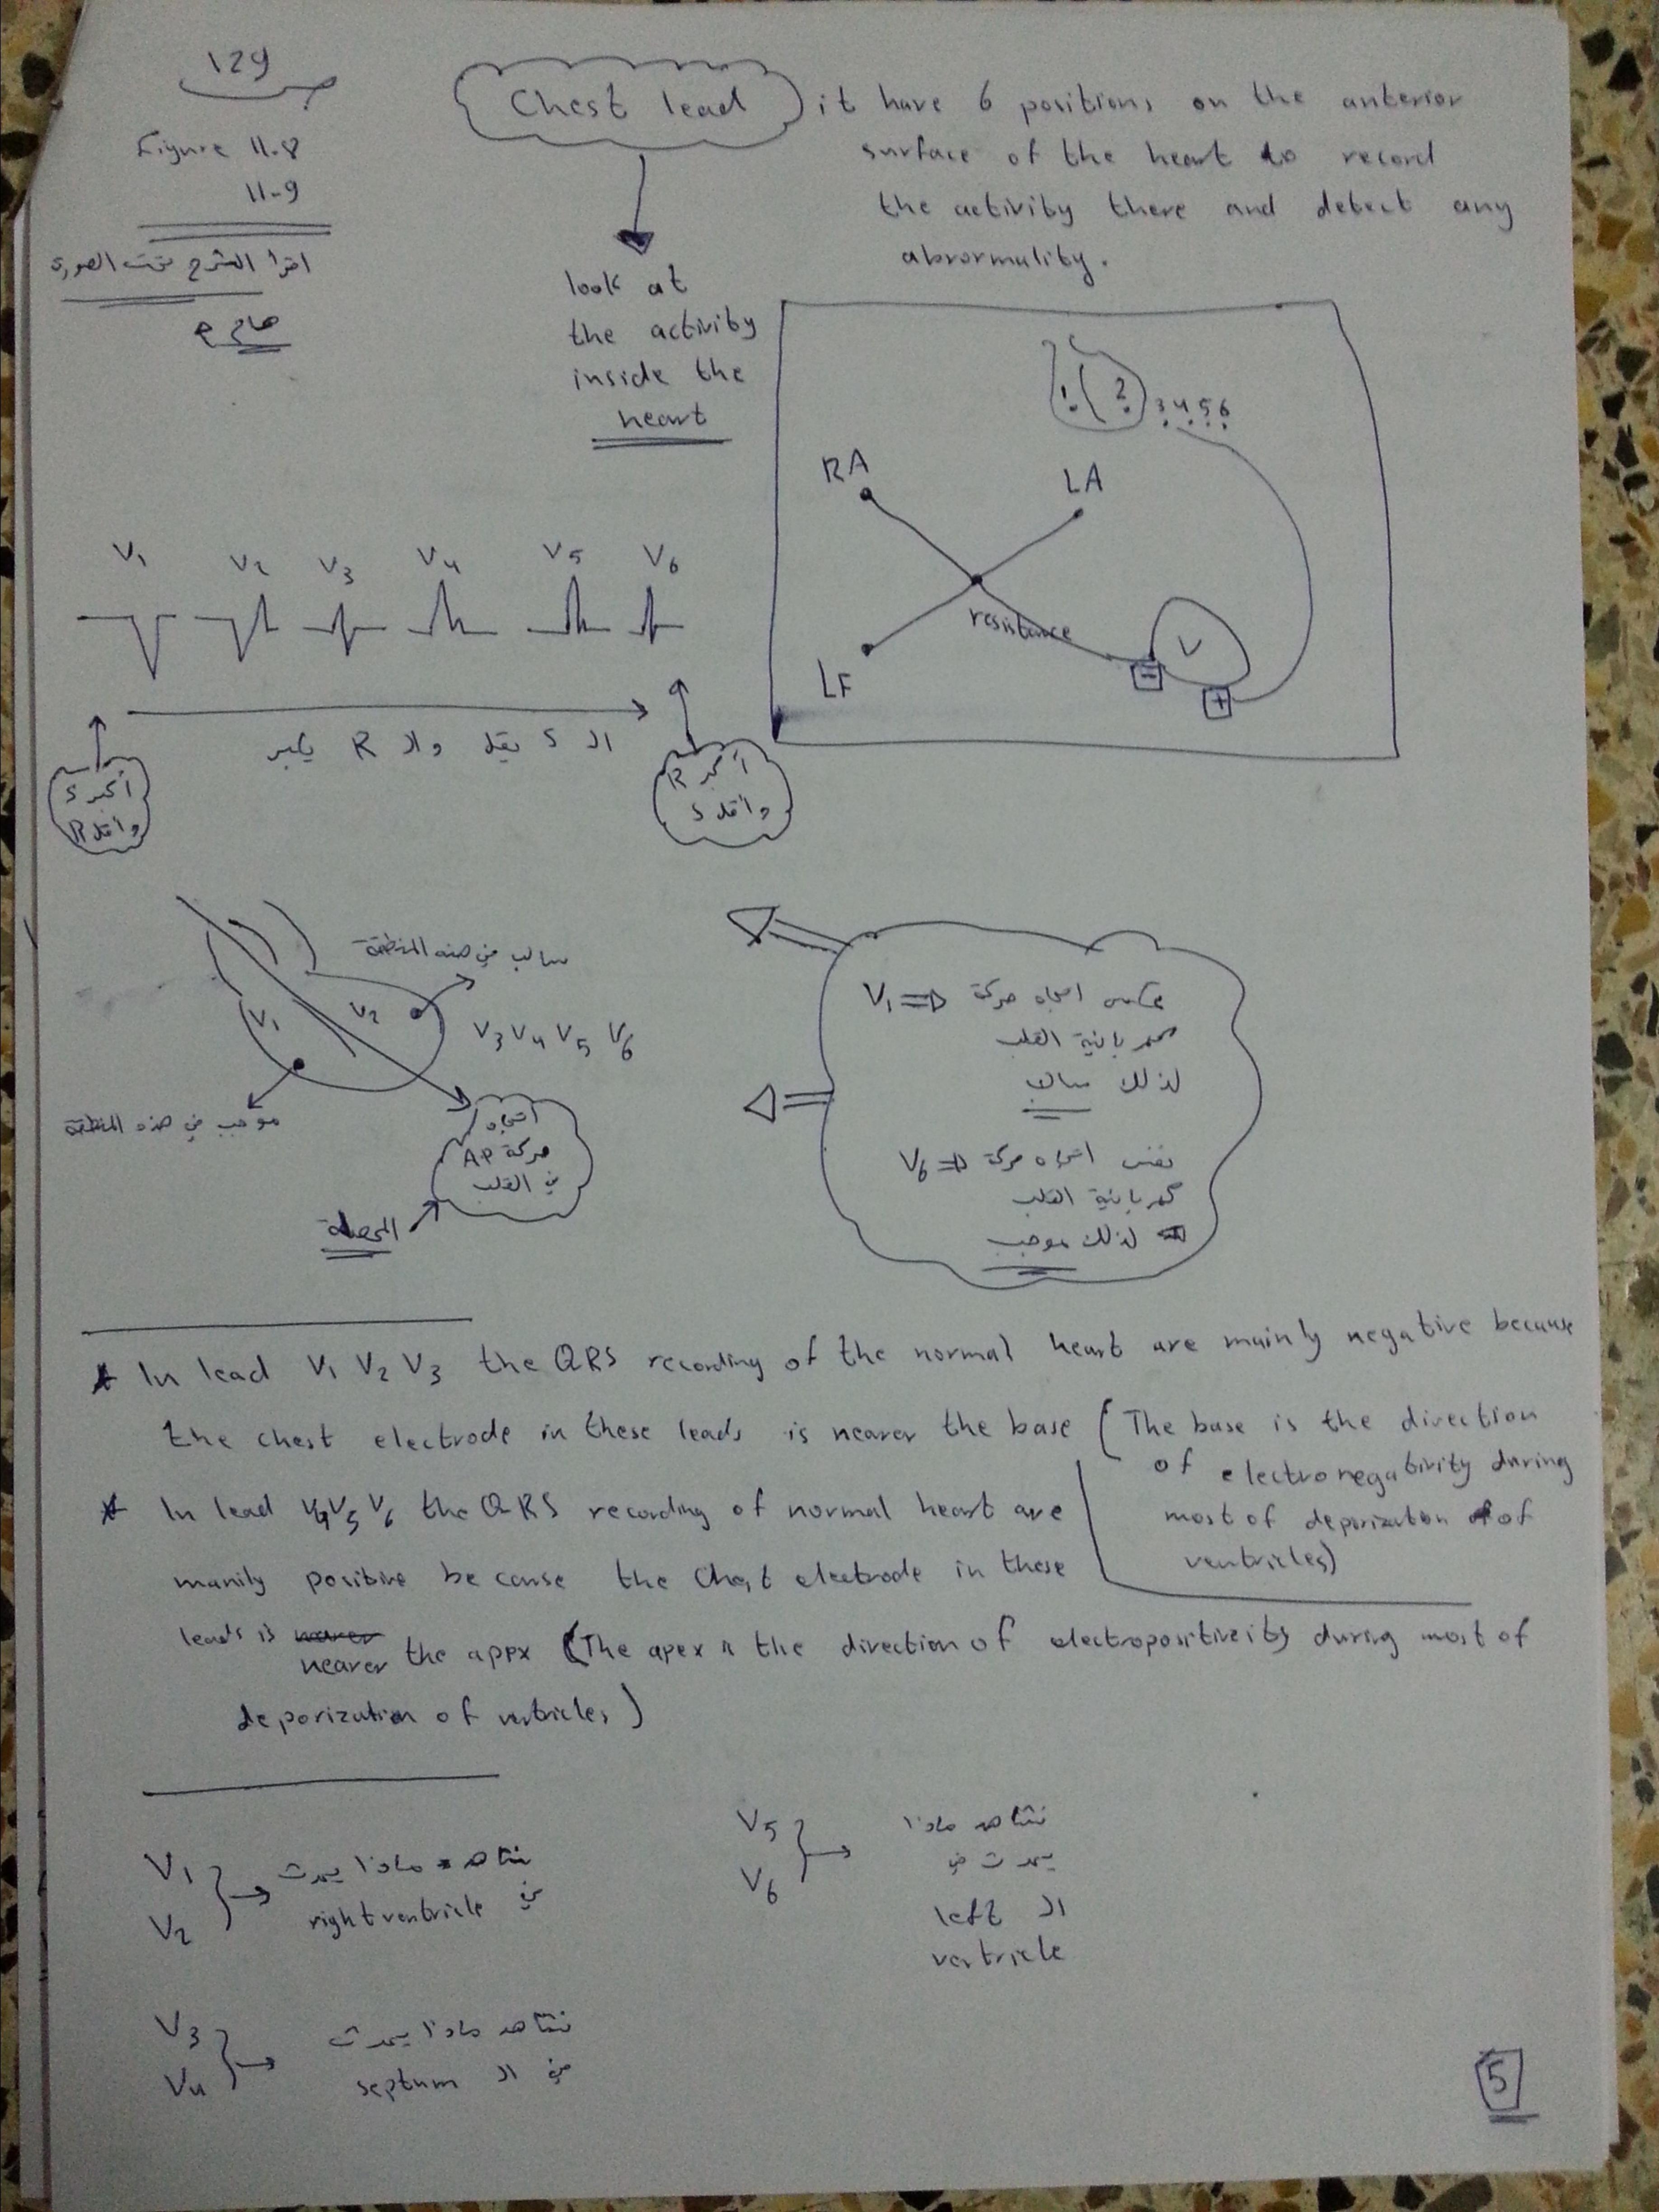 129 ص
Figure 11.8
11-9
اقرأ الشرح تحت الصورة
هام
Chest lead it have 6 positions on the anterior
surface of the heart to record
the activity there and detect any
abnormality.
look at
the activity
inside the
heart
1 2 3 4 5 6
RA
LA
resistance
V
-
+
LF
V1 V2 V3 V4 V5 V6
الـ S يقل والـ R يكبر
أكبر S
وأقل R
أكبر R
وأقل S
سالب في هذه المنطقة
V1 V2
V3 V4 V5 V6
موجب في هذه المنطقة
اتجاه
حركة AP
في القلب
المحصلة
V1 ⇒ عكس اتجاه حركة
كهربائية القلب
لذلك سالب
V6 ⇒ نفس اتجاه حركة
كهربائية القلب
لذلك موجب
* In lead V1 V2 V3 the QRS recording of the normal heart are mainly negative because
the chest electrode in these leads is nearer the base (The base is the direction
of electronegativity during
most of deporization of
ventricles)
* In lead V4 V5 V6 the QRS recording of normal heart are
manily positive be cause the chest electrode in these
leads is nearer the appx (The apex is the direction of electropositiveity during most of
deporization of vntricles)
V1
V2
نشاهد ماذا يحدث
في right ventricle
V5
V6
نشاهد ماذا
يحدث في
الـ left
ventricle
V3
V4
نشاهد ماذا يحدث
في الـ septum
5